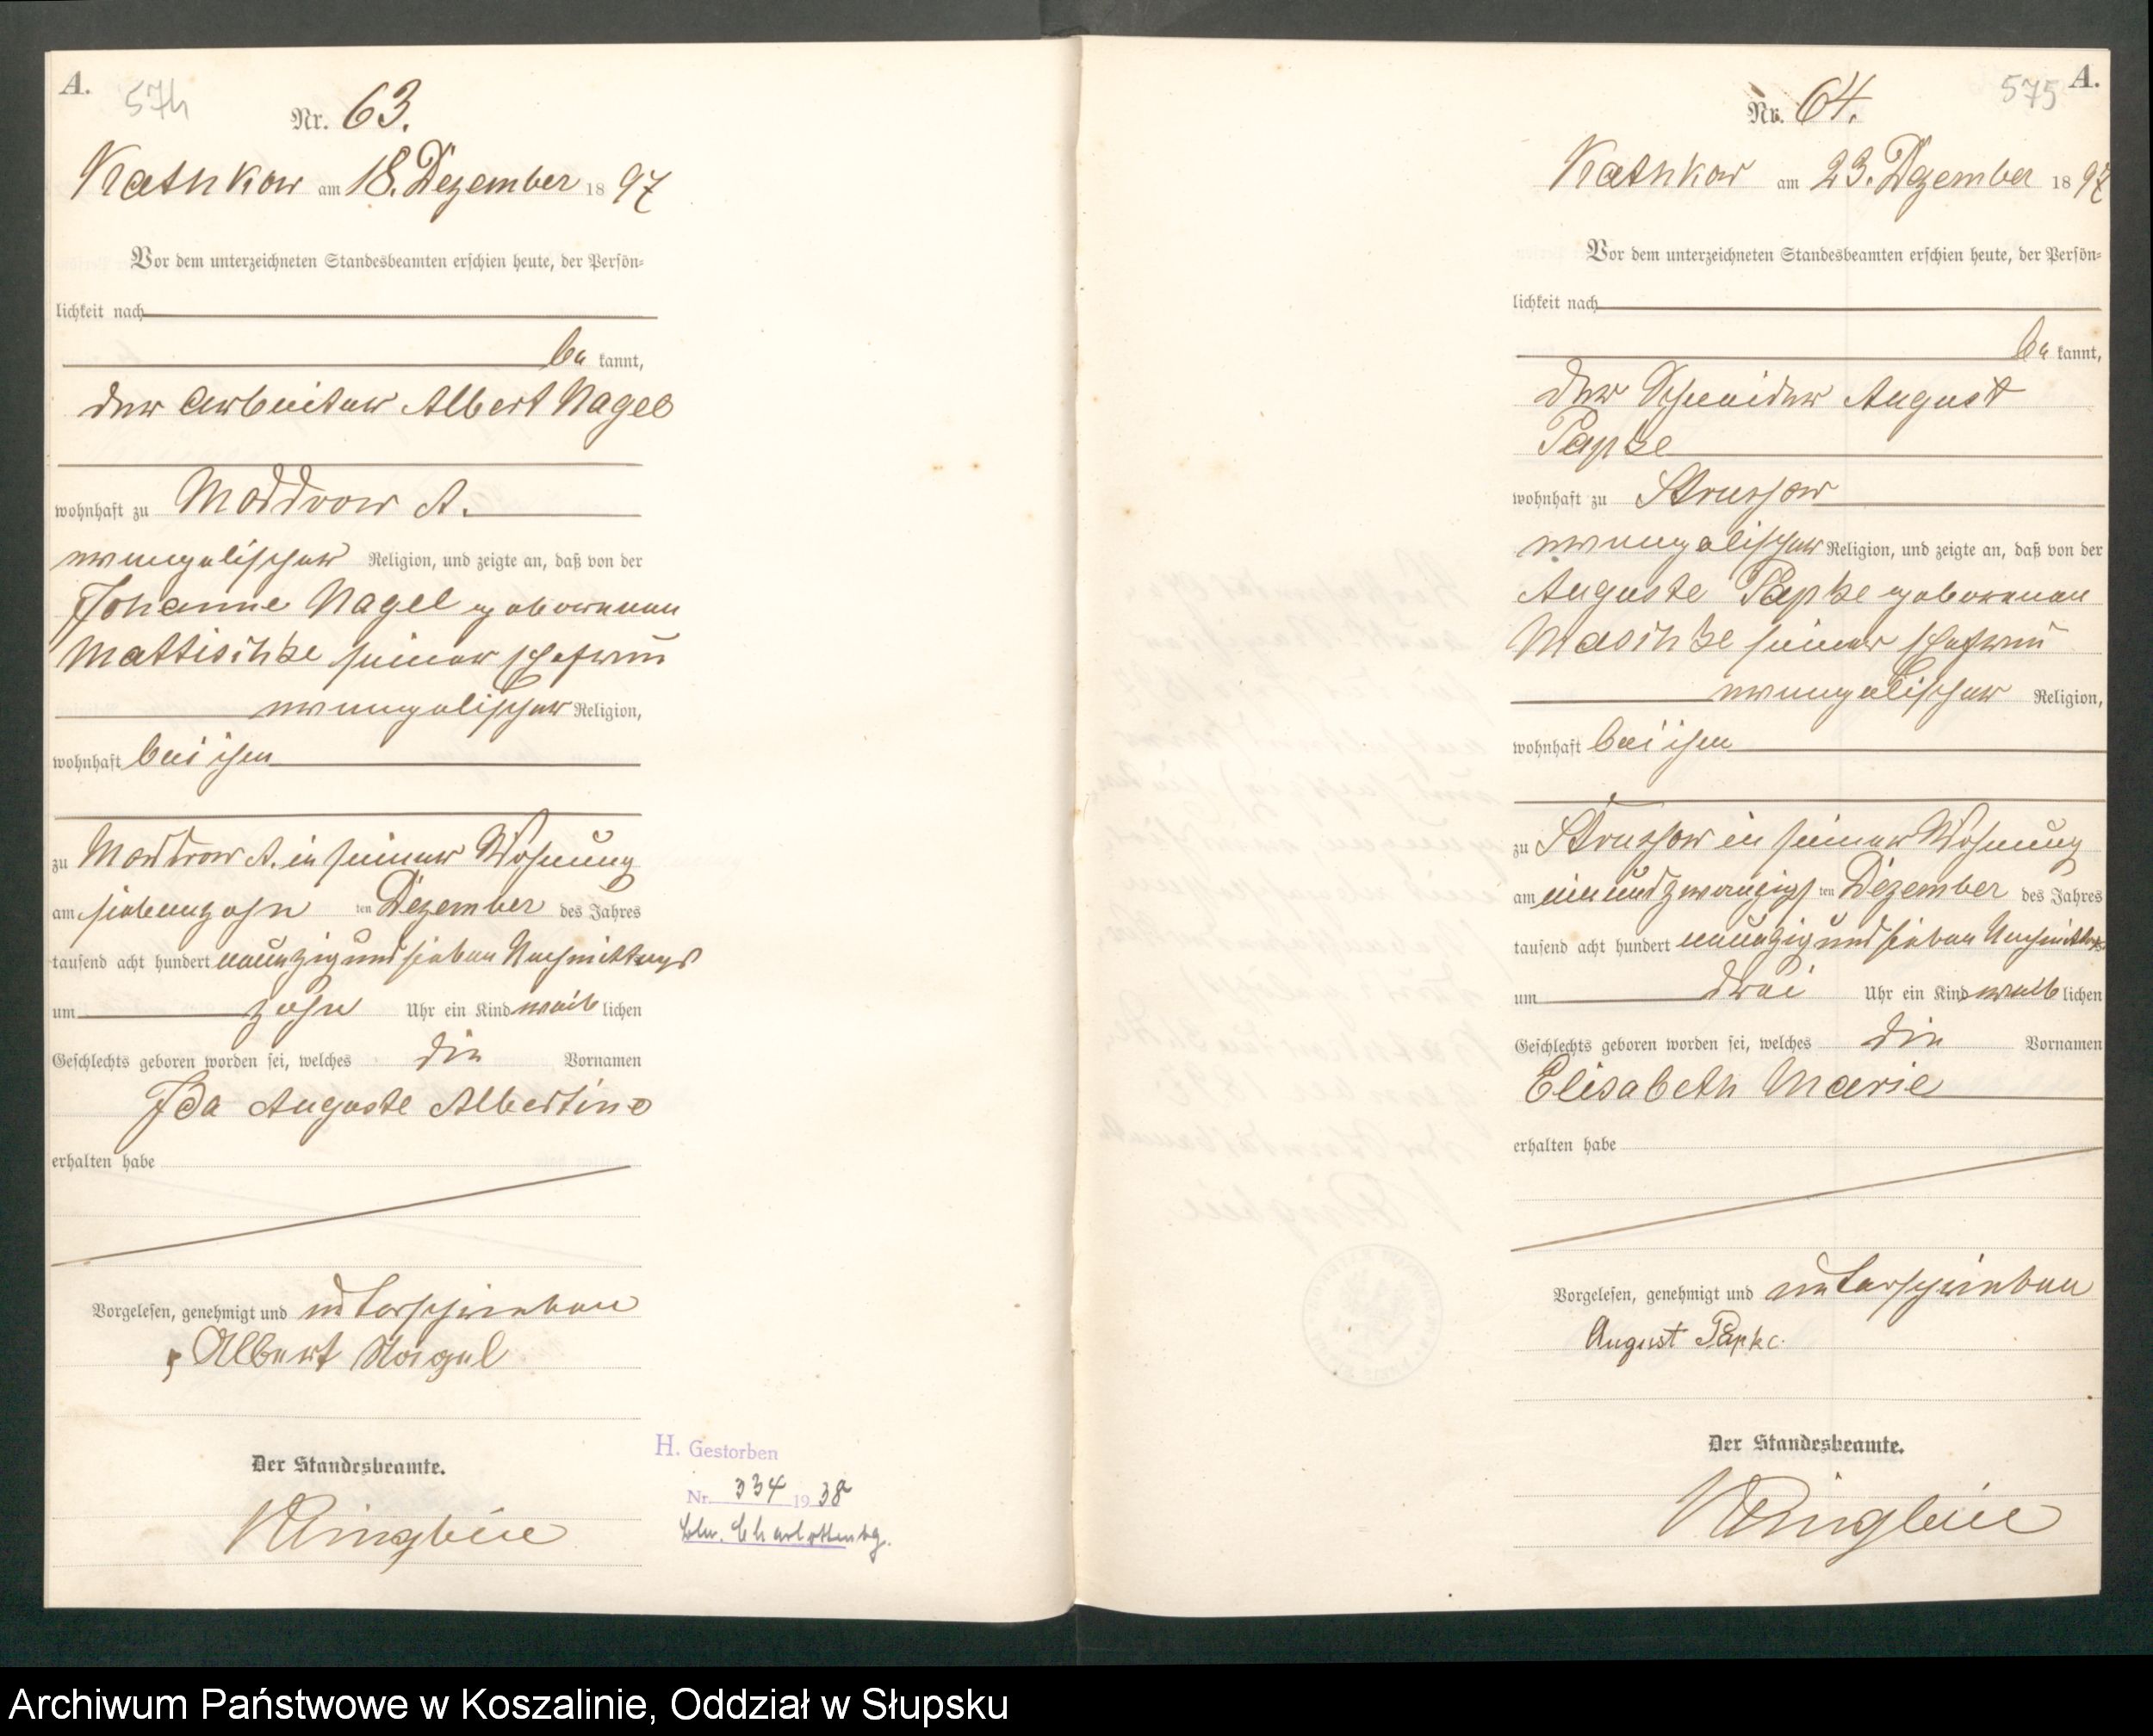 A.
574
Nr. 63.
Rathkow am 18. Dezember 1897
Vor dem unterzeichneten Standesbeamten erschien heute, der Persön-
lichkeit nach
be kannt,
der Arbeiter Albert Nagel
wohnhaft zu Moddrow A.
evangelischer Religion, und zeigte an, daß von der
Johanne Nagel geborenen
Mattischke seiner Ehefrau
evangelischer Religion,
wohnhaft bei ihm
zu Moddrow A. in seiner Wohnung
am siebenzehn ten Dezember des Jahres
tausend acht hundert neunzig und sieben Nachmittags
um zehn Uhr ein Kind weib lichen
Geschlechts geboren worden sei, welches die Vornamen
Ida Auguste Albertine
erhalten habe
Vorgelesen, genehmigt und unterschrieben
Albert Nagel
Der Standesbeamte.
H. Gestorben
Nr. 334 1938
Bln. Charlottenbg.
575
A.
Nr. 64.
Rathkow am 23. Dezember 1897
Vor dem unterzeichneten Standesbeamten erschien heute, der Persön-
lichkeit nach
be kannt,
der Schneider August
Papke
wohnhaft zu Strussow
evangelischer Religion, und zeigte an, daß von der
Auguste Papke geborenen
Maschke seiner Ehefrau
evangelischer Religion,
wohnhaft bei ihm
zu Strussow in seiner Wohnung
am einundzwanzigs ten Dezember des Jahres
tausend acht hundert neunzig und sieben Nachmittags
um drei Uhr ein Kind weib lichen
Geschlechts geboren worden sei, welches die Vornamen
Elisabeth Marie
erhalten habe
Vorgelesen, genehmigt und unterschrieben
August Papke.
Der Standesbeamte.
Archiwum Państwowe w Koszalinie, Oddział w Słupsku